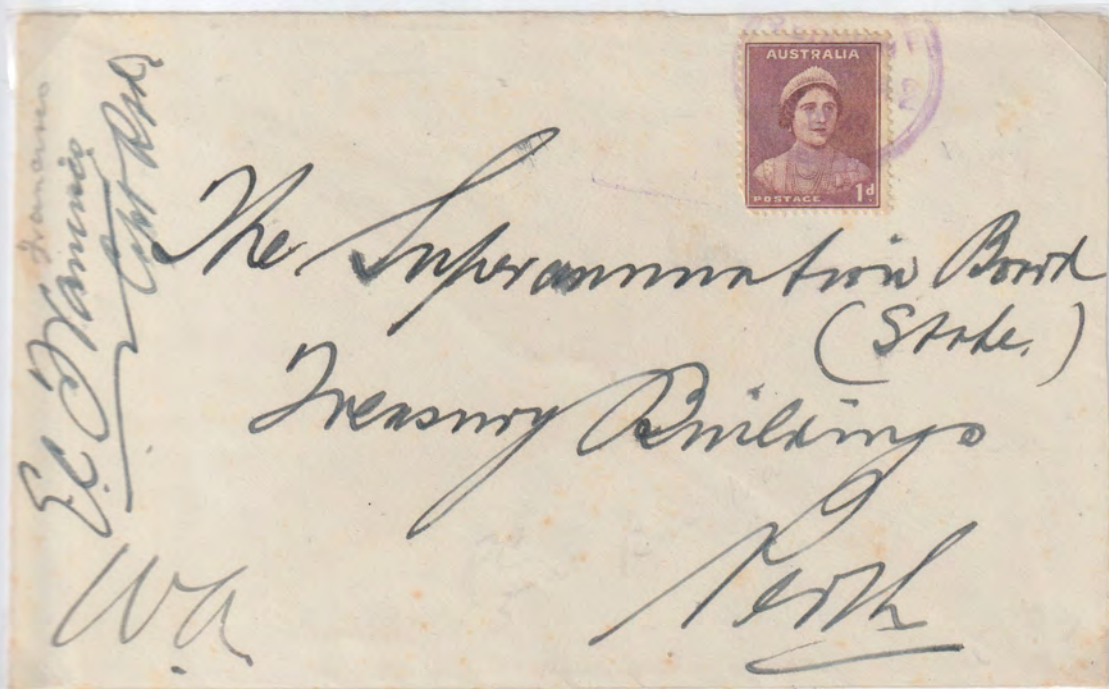 AUSTRALIA
POSTAGE 1d
The Superannuation Board
(State.)
Treasury Buildings
Perth
W.A